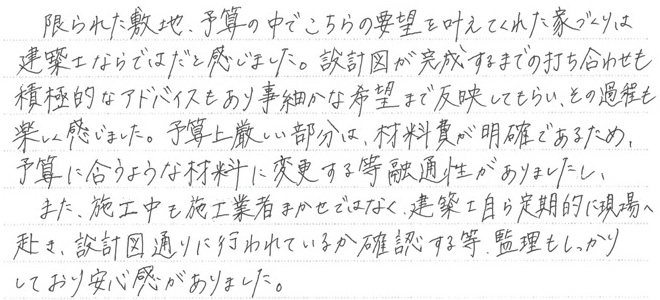 限られた敷地、予算の中でこちらの要望を叶えてくれた家づくりは
建築士ならではだと感じました。設計図が完成するまでの打ち合わせも
積極的なアドバイスもあり事細かな希望まで反映してもらい、その過程も
楽しく感じました。予算上厳しい部分は、材料費が明確であるため、
予算に合うような材料に変更する等融通性がありましたし、
また、施工中も施工業者まかせではなく、建築士自ら定期的に現場へ
赴き、設計図通りに行われているか確認する等、監理もしっかり
しており安心感がありました。